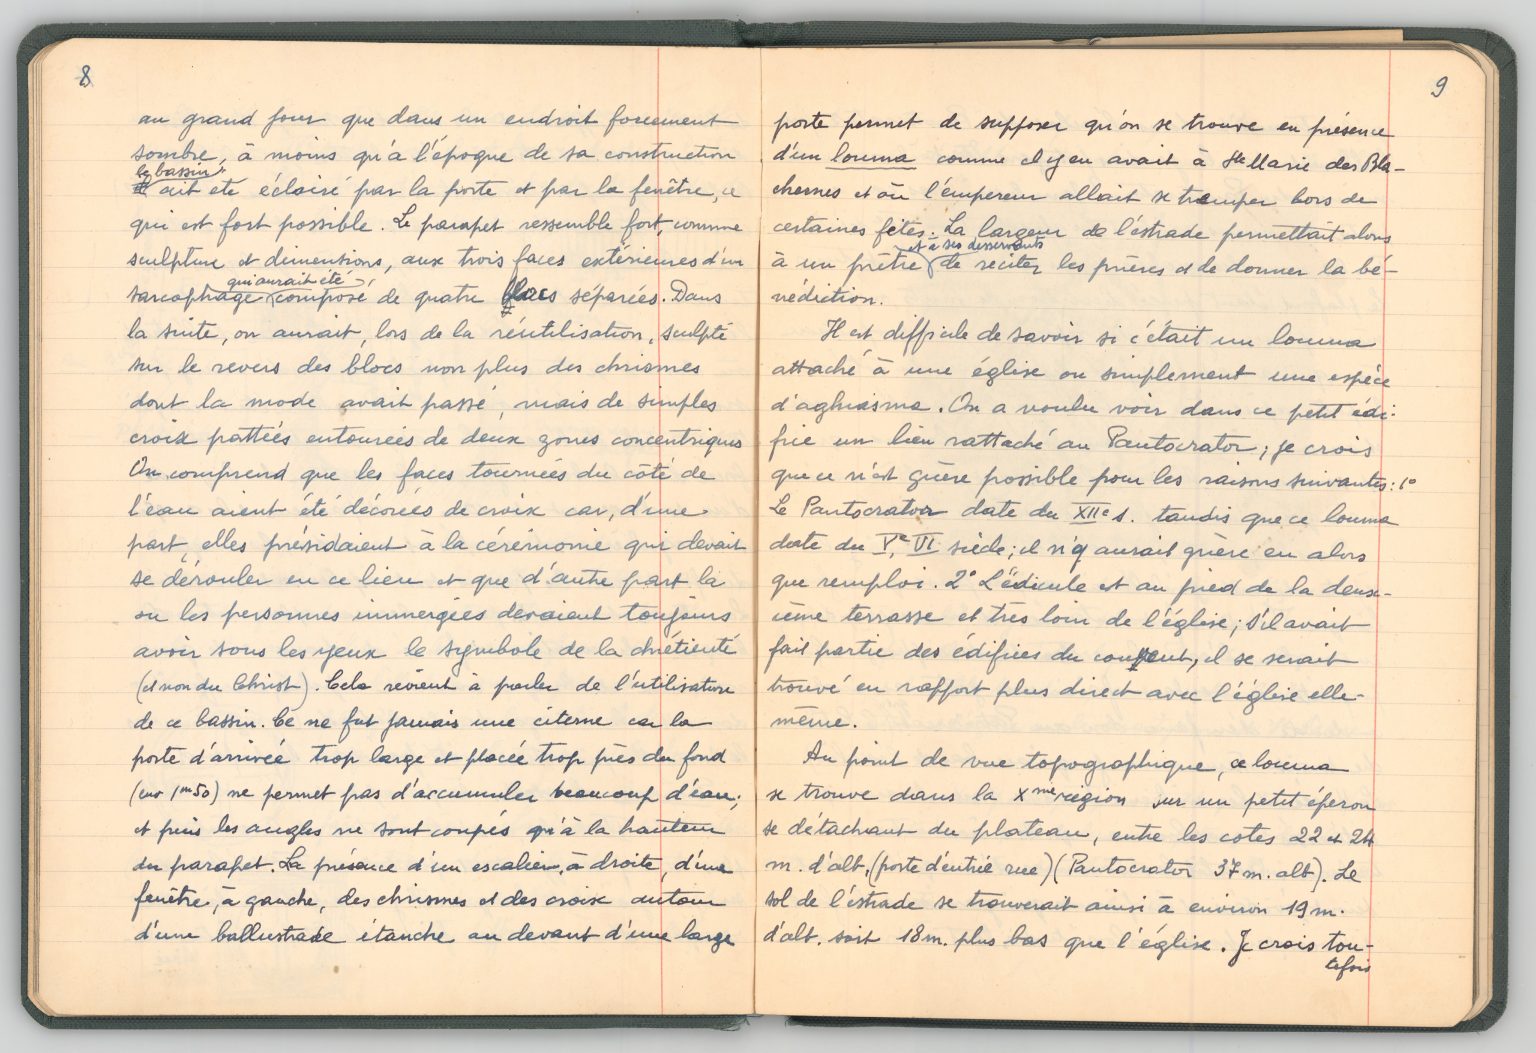 8
au grand jour que dans un endroit forcement
sombre, à moins qu'à l'époque de sa construction
le bassin
ait été éclairé par la porte et par la fenêtre, ce
qui est fort possible. Le parapet ressemble fort, comme
sculpture et dimensions, aux trois faces extérieures d'un
qui aurait été
sarcophage composé de quatre blocs séparées. Dans
la suite, on aurait, lors de la réutilisation, sculpté
sur le revers des blocs non plus des chrismes
dont la mode avait passé, mais de simples
croix pattées entourées de deux zones concentriques
On comprend que les faces tournées du côté de
l'eau aient été décorées de croix car, d'une
part, elles présidaient à la cérémonie qui devait
se dérouler en ce lieu et que d'autre part la
ou les personnes immergées devaient toujours
avoir sous les yeux le symbole de la chrétienté
(et non du Christ). Cela revient à parler de l'utilisation
de ce bassin. Ce ne fut jamais une citerne car la
porte d'arrivée trop large et placée trop près du fond
(env 1m50) ne permet pas d'accumuler beaucoup d'eau;
et puis les angles ne sont coupés qu'à la hauteur
du parapet. La présence d'un escalier, à droite, d'une
fenêtre, à gauche, des chrismes et des croix autour
d'une ballustrade étanche au devant d'une large
9
porte permet de supposer qu'on se trouve en présence
d'un louma comme il y en avait à Ste Marie des Bla-
chernes et où l'empereur allait se tremper lors de
certaines fêtes. La largeur de l'éstrade permettait alors
et à ses desservants
à un prêtre de réciter les prières et de donner la bé-
nédiction.
Il est difficile de savoir si c'était un louma
attaché à une église ou simplement une espèce
d'aghiasma. On a voulu voir dans ce petit édi-
fice un lieu rattaché au Pantocrator; je crois
que ce n'est guère possible pour les raisons suivantes: 1°
Le Pantocrator date du XIIe s. tandis que ce louma
date du Ve, VI siècle; il n'y aurait guère eu alors
que remploi. 2° L'édicule est au pied de la deux-
ième terrasse et très loin de l'église; s'il avait
fait partie des édifices du couvent, il se serait
trouvé en rapport plus direct avec l'église elle-
même.
Au point de vue topographique, ce louma
se trouve dans la Xme région sur un petit éperon
se détachant du plateau, entre les cotes 22 et 24
m. d'alt. (porte d'entrée rue) (Pantocrator 37 m. alt). Le
sol de l'éstrade se trouverait ainsi à environ 19 m.
d'alt. soit 18 m. plus bas que l'église. Je crois tou-
tefois